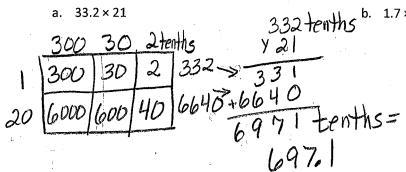 a. 33.2 × 21
b. 1.7
300 30 2tenths
1 300 30 2 332
20 6000 600 40 6640
332 tenths
x 21
331
+6640
6971 tenths =
697.1